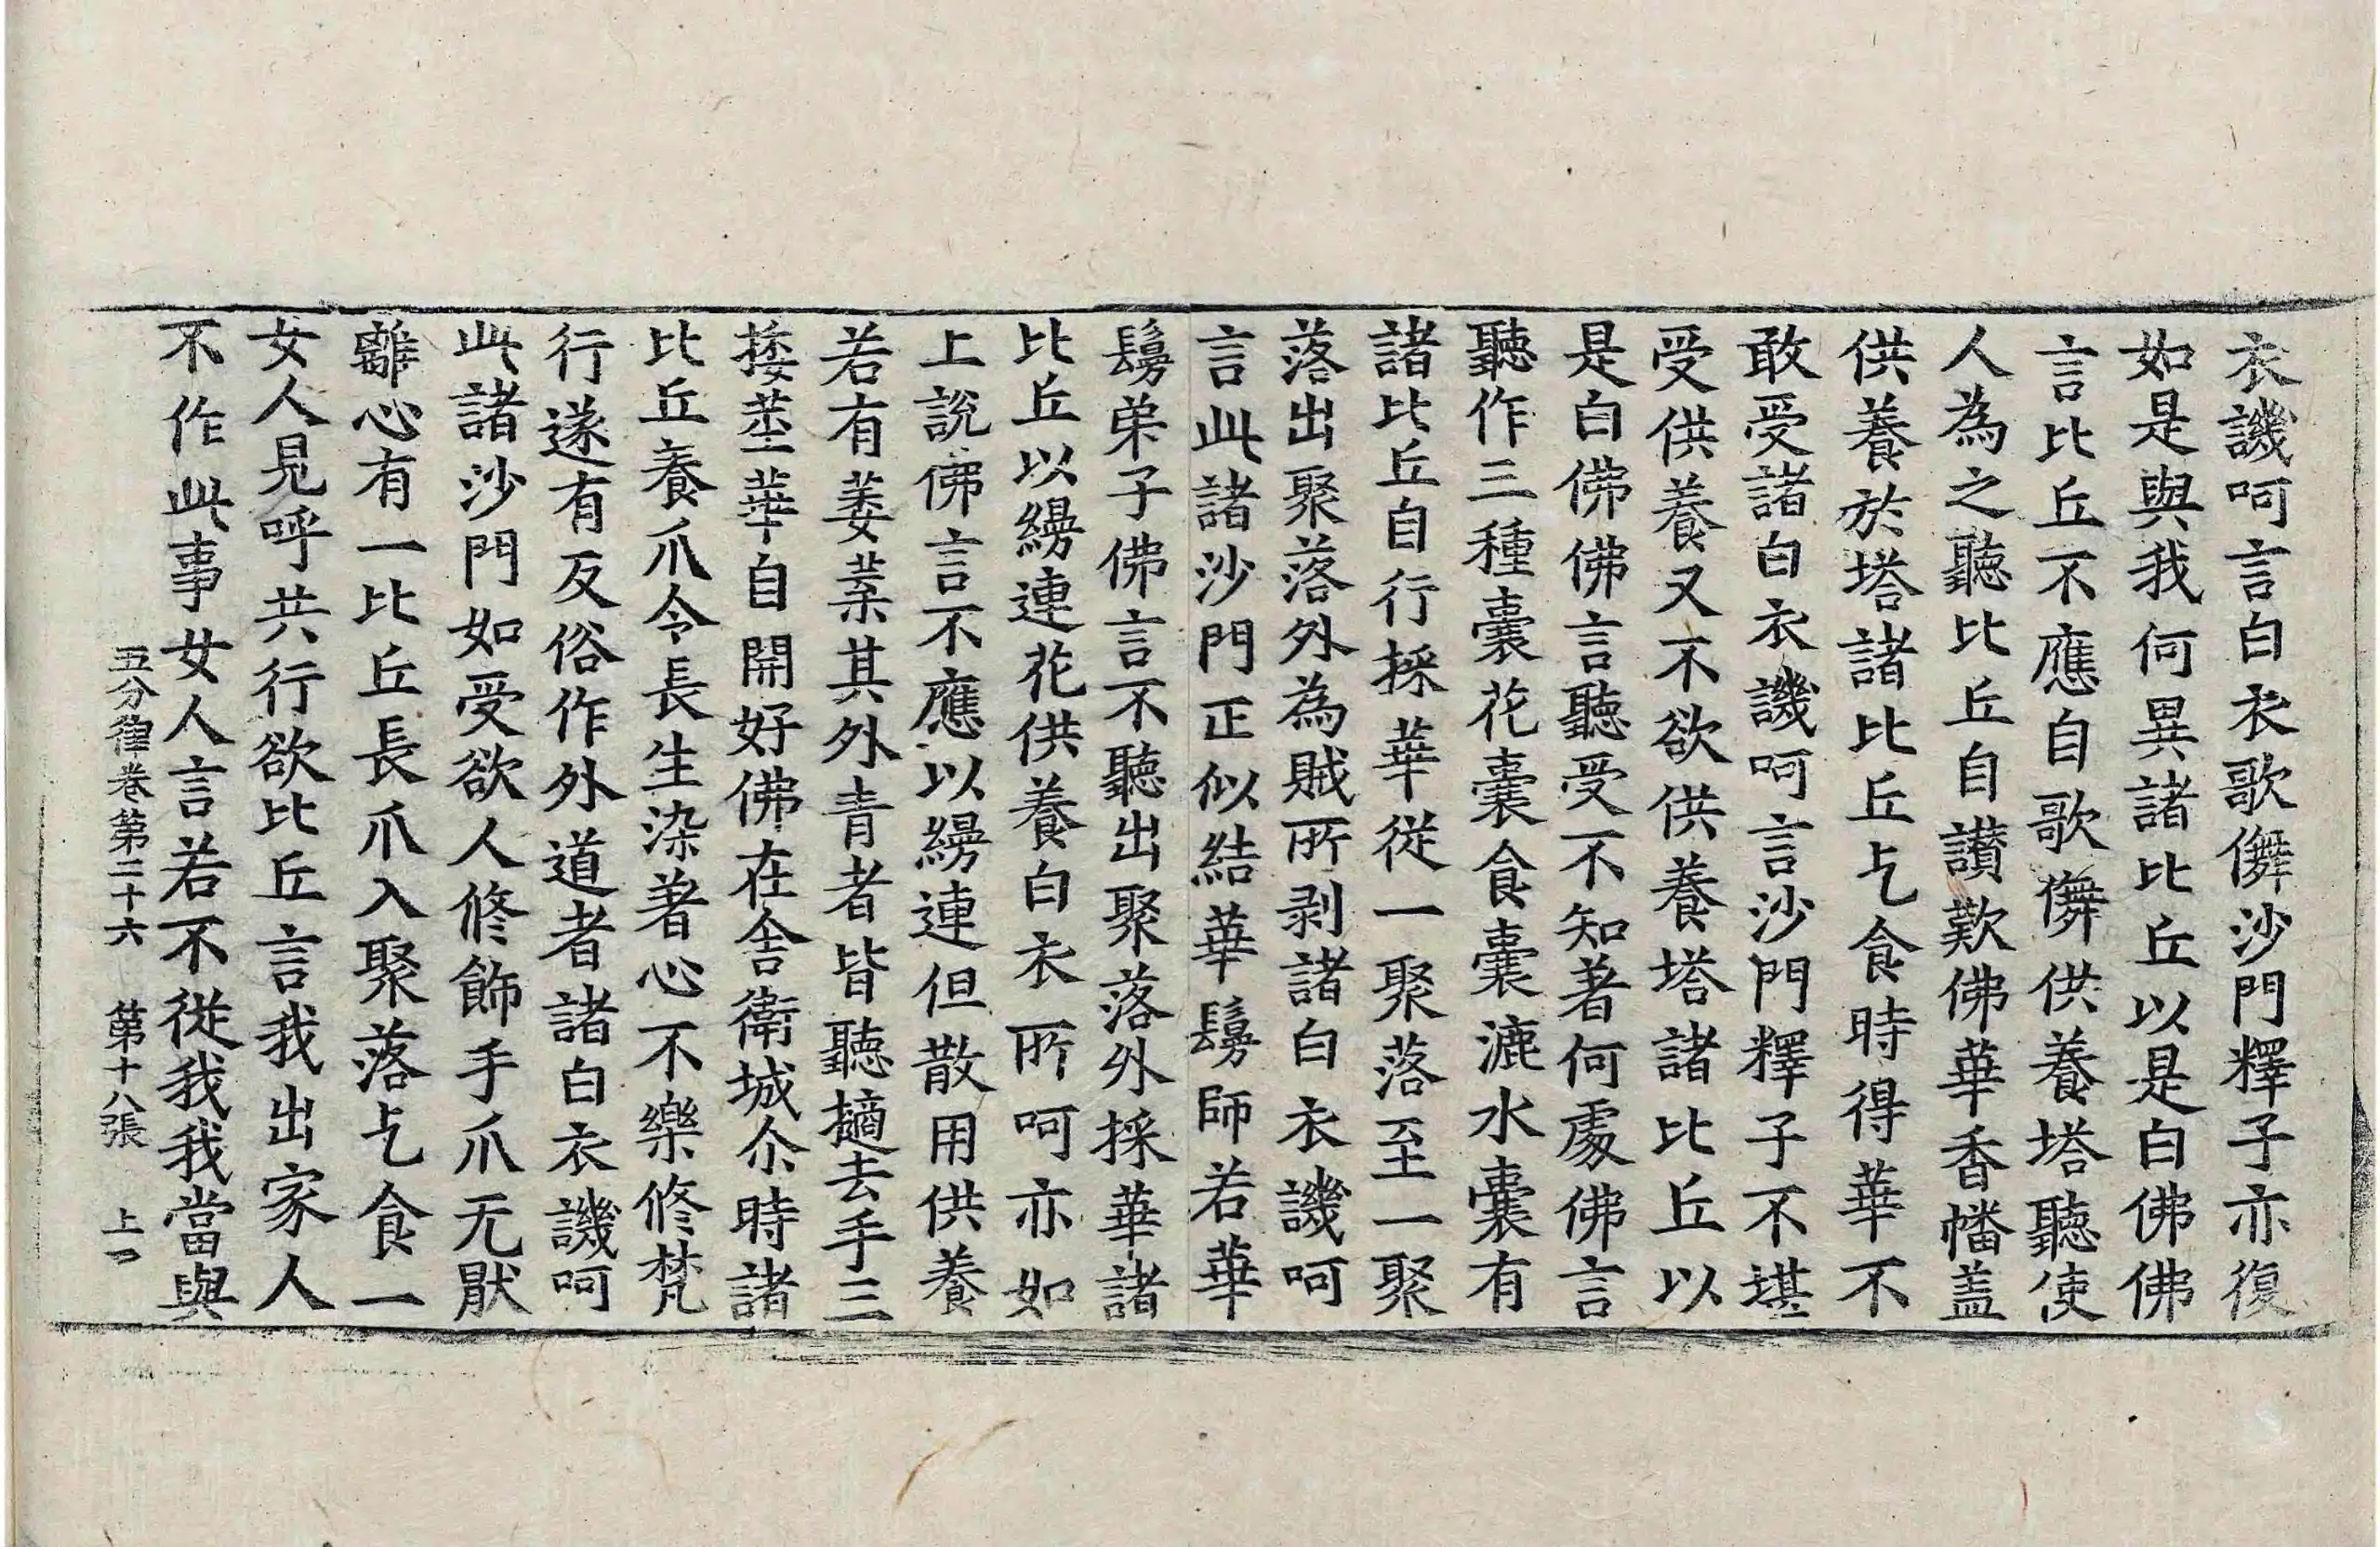 衣譏呵言白衣歌儛沙門釋子亦復
如是與我何異諸比丘以是白佛佛
言比丘不應自歌儛供養塔聽使
人為之聽比丘自讃歎佛華香幡盖
供養於塔諸比丘乞食時得華不
敢受諸白衣譏呵言沙門釋子不堪
受供養又不欲供養塔諸比丘以
是白佛佛言聽受不知著何處佛言
聽作三種囊花囊食囊漉水囊有
諸比丘自行採華從一聚落至一聚
落出聚落外為賊所剥諸白衣譏呵
言此諸沙門正似結華鬘師若華
鬘弟子佛言不聽出聚落外採華諸
比丘以縷連花供養白衣所呵亦如
上說佛言不應以縷連但散用供養
若有萎葉其外青者皆聽擿去手三
捼莖華自開好佛在舍衛城尒時諸
比丘養爪令長生染著心不樂修梵
行遂有反俗作外道者諸白衣譏呵
此諸沙門如受欲人修飾手爪无猒
離心有一比丘長爪入聚落乞食一
女人見呼共行欲比丘言我出家人
不作此事女人言若不從我我當與
五分律卷第二十六 第十八張 上